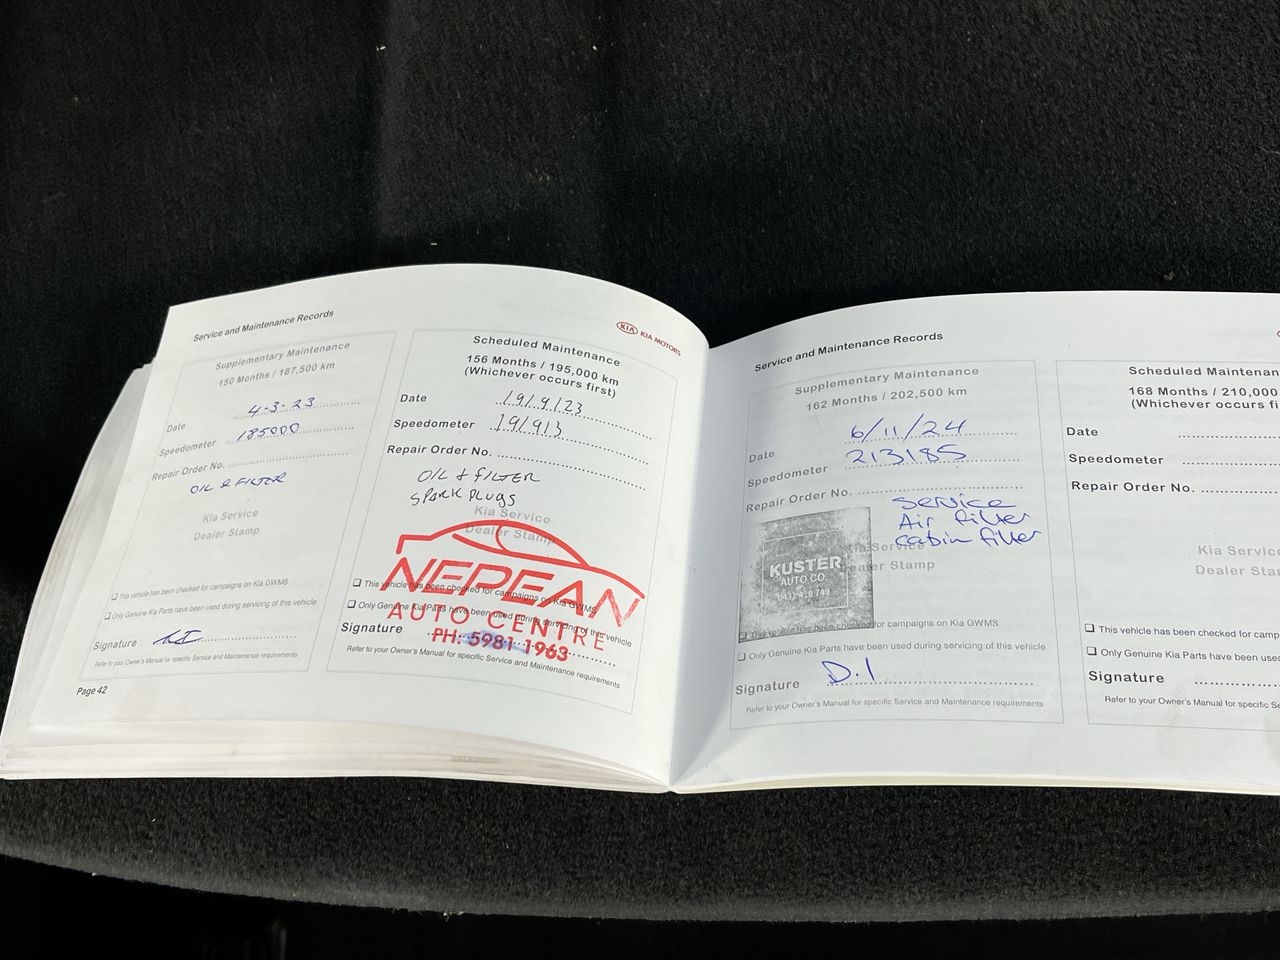 Service and Maintenance Records
Supplementary Maintenance
150 Months / 187,500 km
Date 4-3-23
Speedometer 185000
Repair Order No.
OIL & FILTER
Kia Service
Dealer Stamp
❑ This vehicle has been checked for campaigns on Kia GWMS
❑ Only Genuine Kia Parts have been used during servicing of this vehicle
Signature
Refer to your Owner's Manual for specific Service and Maintenance requirements
Page 42
KIA KIA MOTORS
Scheduled Maintenance
156 Months / 195,000 km
(Whichever occurs first)
Date 19/9/23
Speedometer 191913
Repair Order No.
OIL & FILTER
SPARK PLUGS
Kia Service
Dealer Stamp
NEPEAN
AUTO CENTRE
PH: 5981 1963
❑ This vehicle has been checked for campaigns on Kia GWMS
❑ Only Genuine Kia Parts have been used during servicing of this vehicle
Signature
Refer to your Owner's Manual for specific Service and Maintenance requirements
Service and Maintenance Records
Supplementary Maintenance
162 Months / 202,500 km
Date 6/11/24
Speedometer 213185
Repair Order No.
Service
Air filter
cabin filter
Kia Service
Dealer Stamp
KUSTER
AUTO CO.
❑ This vehicle has been checked for campaigns on Kia GWMS
❑ Only Genuine Kia Parts have been used during servicing of this vehicle
Signature D.I
Refer to your Owner's Manual for specific Service and Maintenance requirements
Scheduled Maintenan
168 Months / 210,000
(Whichever occurs fi
Date
Speedometer
Repair Order No.
Kia Service
Dealer Stam
❑ This vehicle has been checked for camp
❑ Only Genuine Kia Parts have been used
Signature
Refer to your Owner's Manual for specific Se